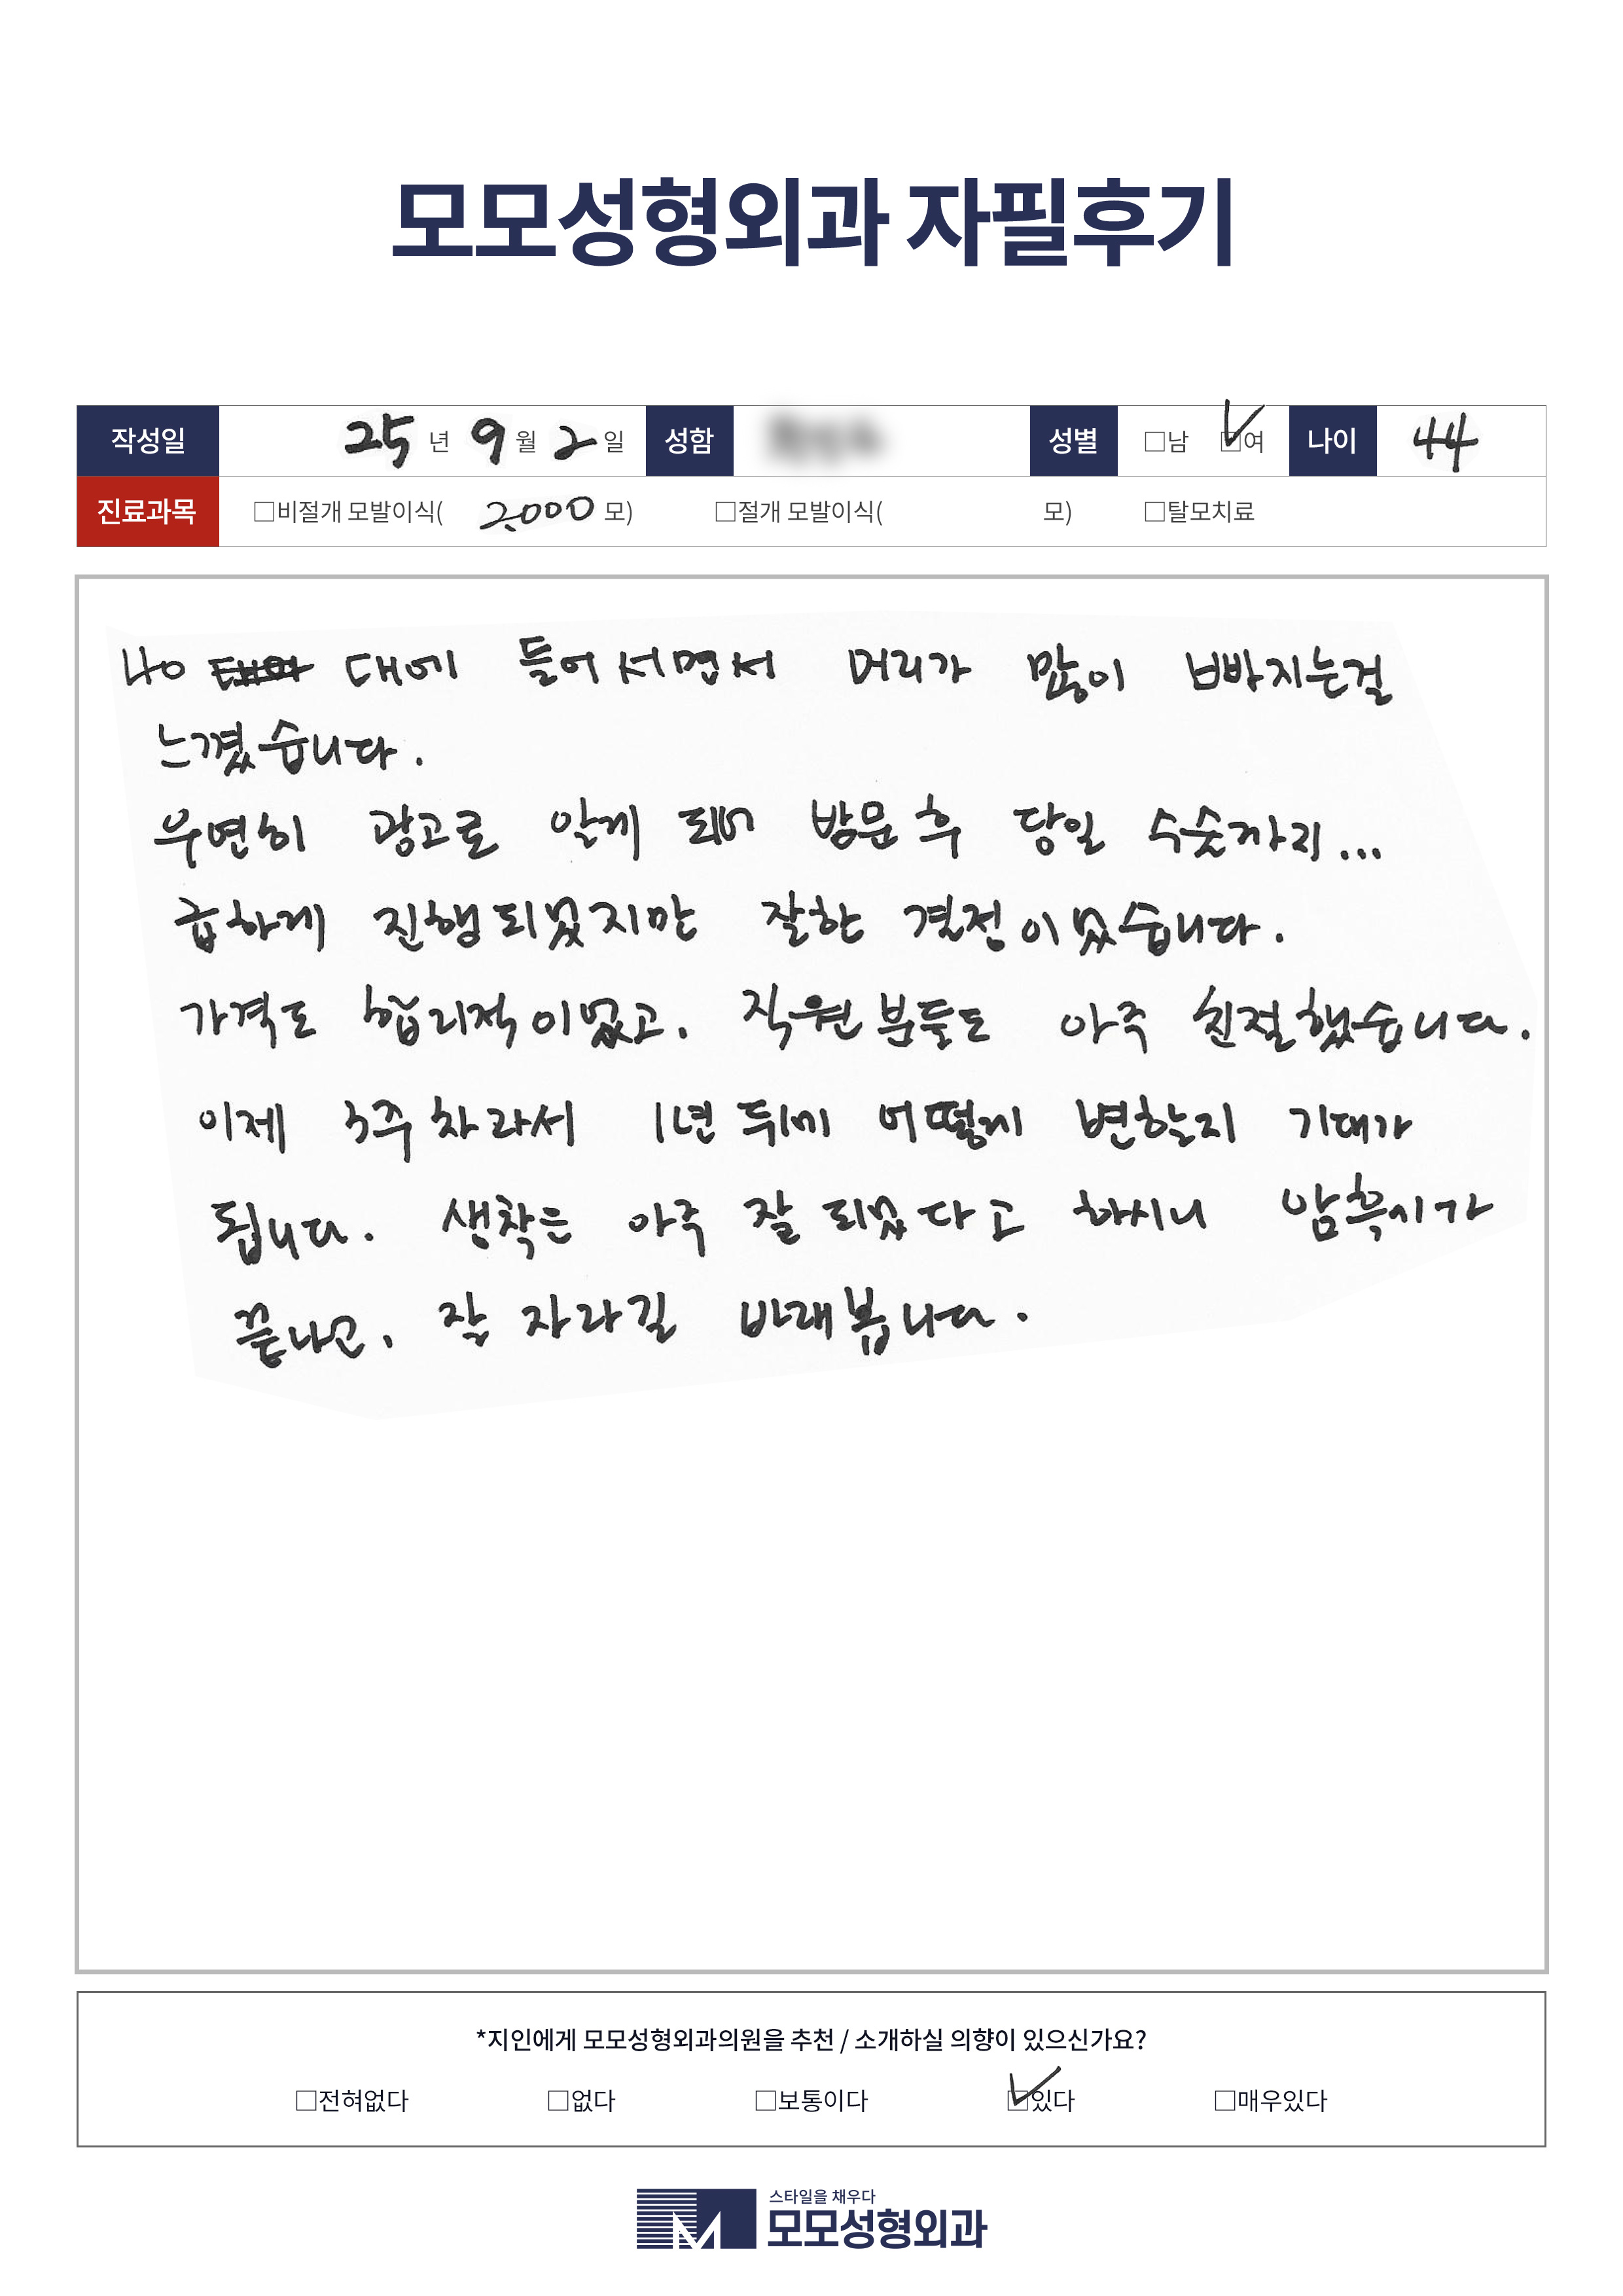 모모성형외과 자필후기
작성일 25 년 9 월 2 일 성함 성별 □남 □여 나이 44
진료과목 □비절개 모발이식( 2,000 모) □절개 모발이식( 모) □탈모치료
40 대에 들어서면서 머리가 많이 빠지는걸
느꼈습니다.
우연히 광고로 알게 되어 방문 후 당일 수술까지...
급하게 진행되었지만 잘한 결정이었습니다.
가격도 합리적이었고, 직원분들도 아주 친절했습니다.
이제 3주차라서 1년 뒤에 어떻게 변할지 기대가
됩니다. 생착은 아주 잘 되었다고 하시니 암흑기가
끝나고, 잘 자라길 바래봅니다.
*지인에게 모모성형외과의원을 추천 / 소개하실 의향이 있으신가요?
□전혀없다 □없다 □보통이다 □있다 □매우있다
스타일을 채우다
모모성형외과